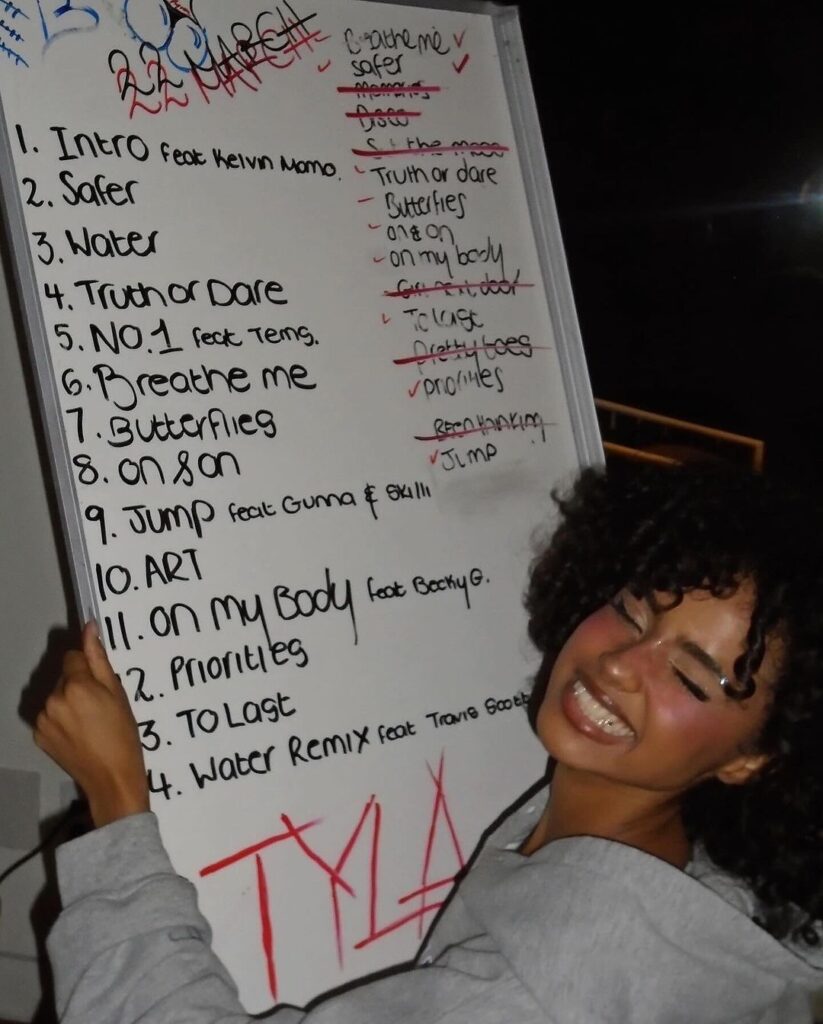 22 MARCH
1. Intro feat Kelvin Momo.
2. Safer
3. Water
4. Truth or Dare
5. NO.1 feat Tems.
6. Breathe me
7. Butterflies
8. on & on
9. Jump feat Gunna & Skilli
10. ART
11. on my Body feat Becky G.
2. Priorities
3. TO Last
4. Water Remix feat Travis Scott
TYLA
Breathe me
safer
Memories
Disco
Truth or dare
Butterflies
on & on
on my body
Girl next door
To last
Pretty toes
priorities
Been thinking
Jump